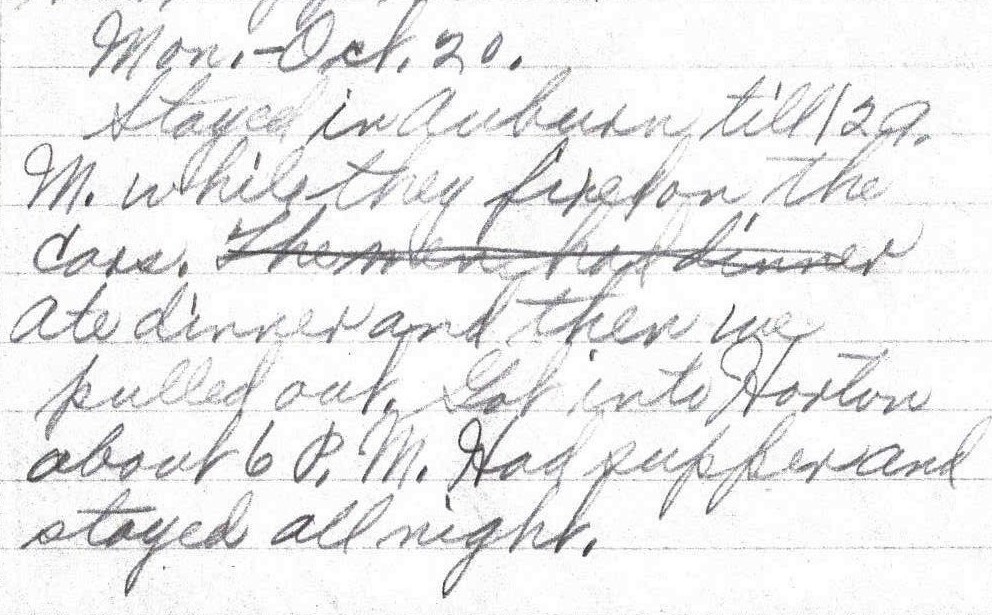 Mon.-Oct. 20.
Stayed in Auburn till 12 A.
M. while they fixed on the
cars. The men had dinner
Ate dinner and then we
pulled out. Got into Horton
about 6 P. M. Had supper and
stayed all night.